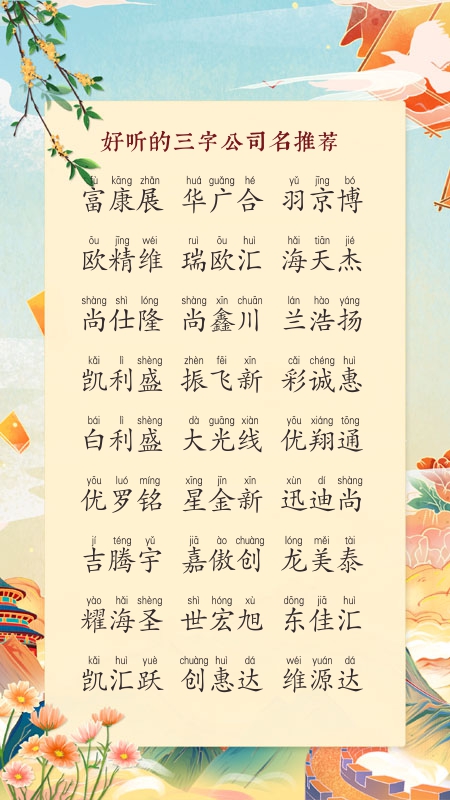 好听的三字公司名推荐
fù kāng zhǎn huá guǎng hé yǔ jīng bó
富康展 华广合 羽京博
ōu jīng wéi ruì ōu huì hǎi tiān jié
欧精维 瑞欧汇 海天杰
shàng shì lóng shàng xīn chuān lán hào yáng
尚仕隆 尚鑫川 兰浩扬
kǎi lì shèng zhèn fēi xīn cǎi chéng huì
凯利盛 振飞新 彩诚惠
bái lì shèng dà guāng xiàn yōu xiáng tōng
白利盛 大光线 优翔通
yōu luó míng xīng jīn xīn xùn dí shàng
优罗铭 星金新 迅迪尚
jí téng yǔ jiā ào chuàng lóng měi tài
吉腾宇 嘉傲创 龙美泰
yào hǎi shèng shì hóng xù dōng jiā huì
耀海圣 世宏旭 东佳汇
kǎi huì yuè chuàng huì dá wéi yuán dá
凯汇跃 创惠达 维源达